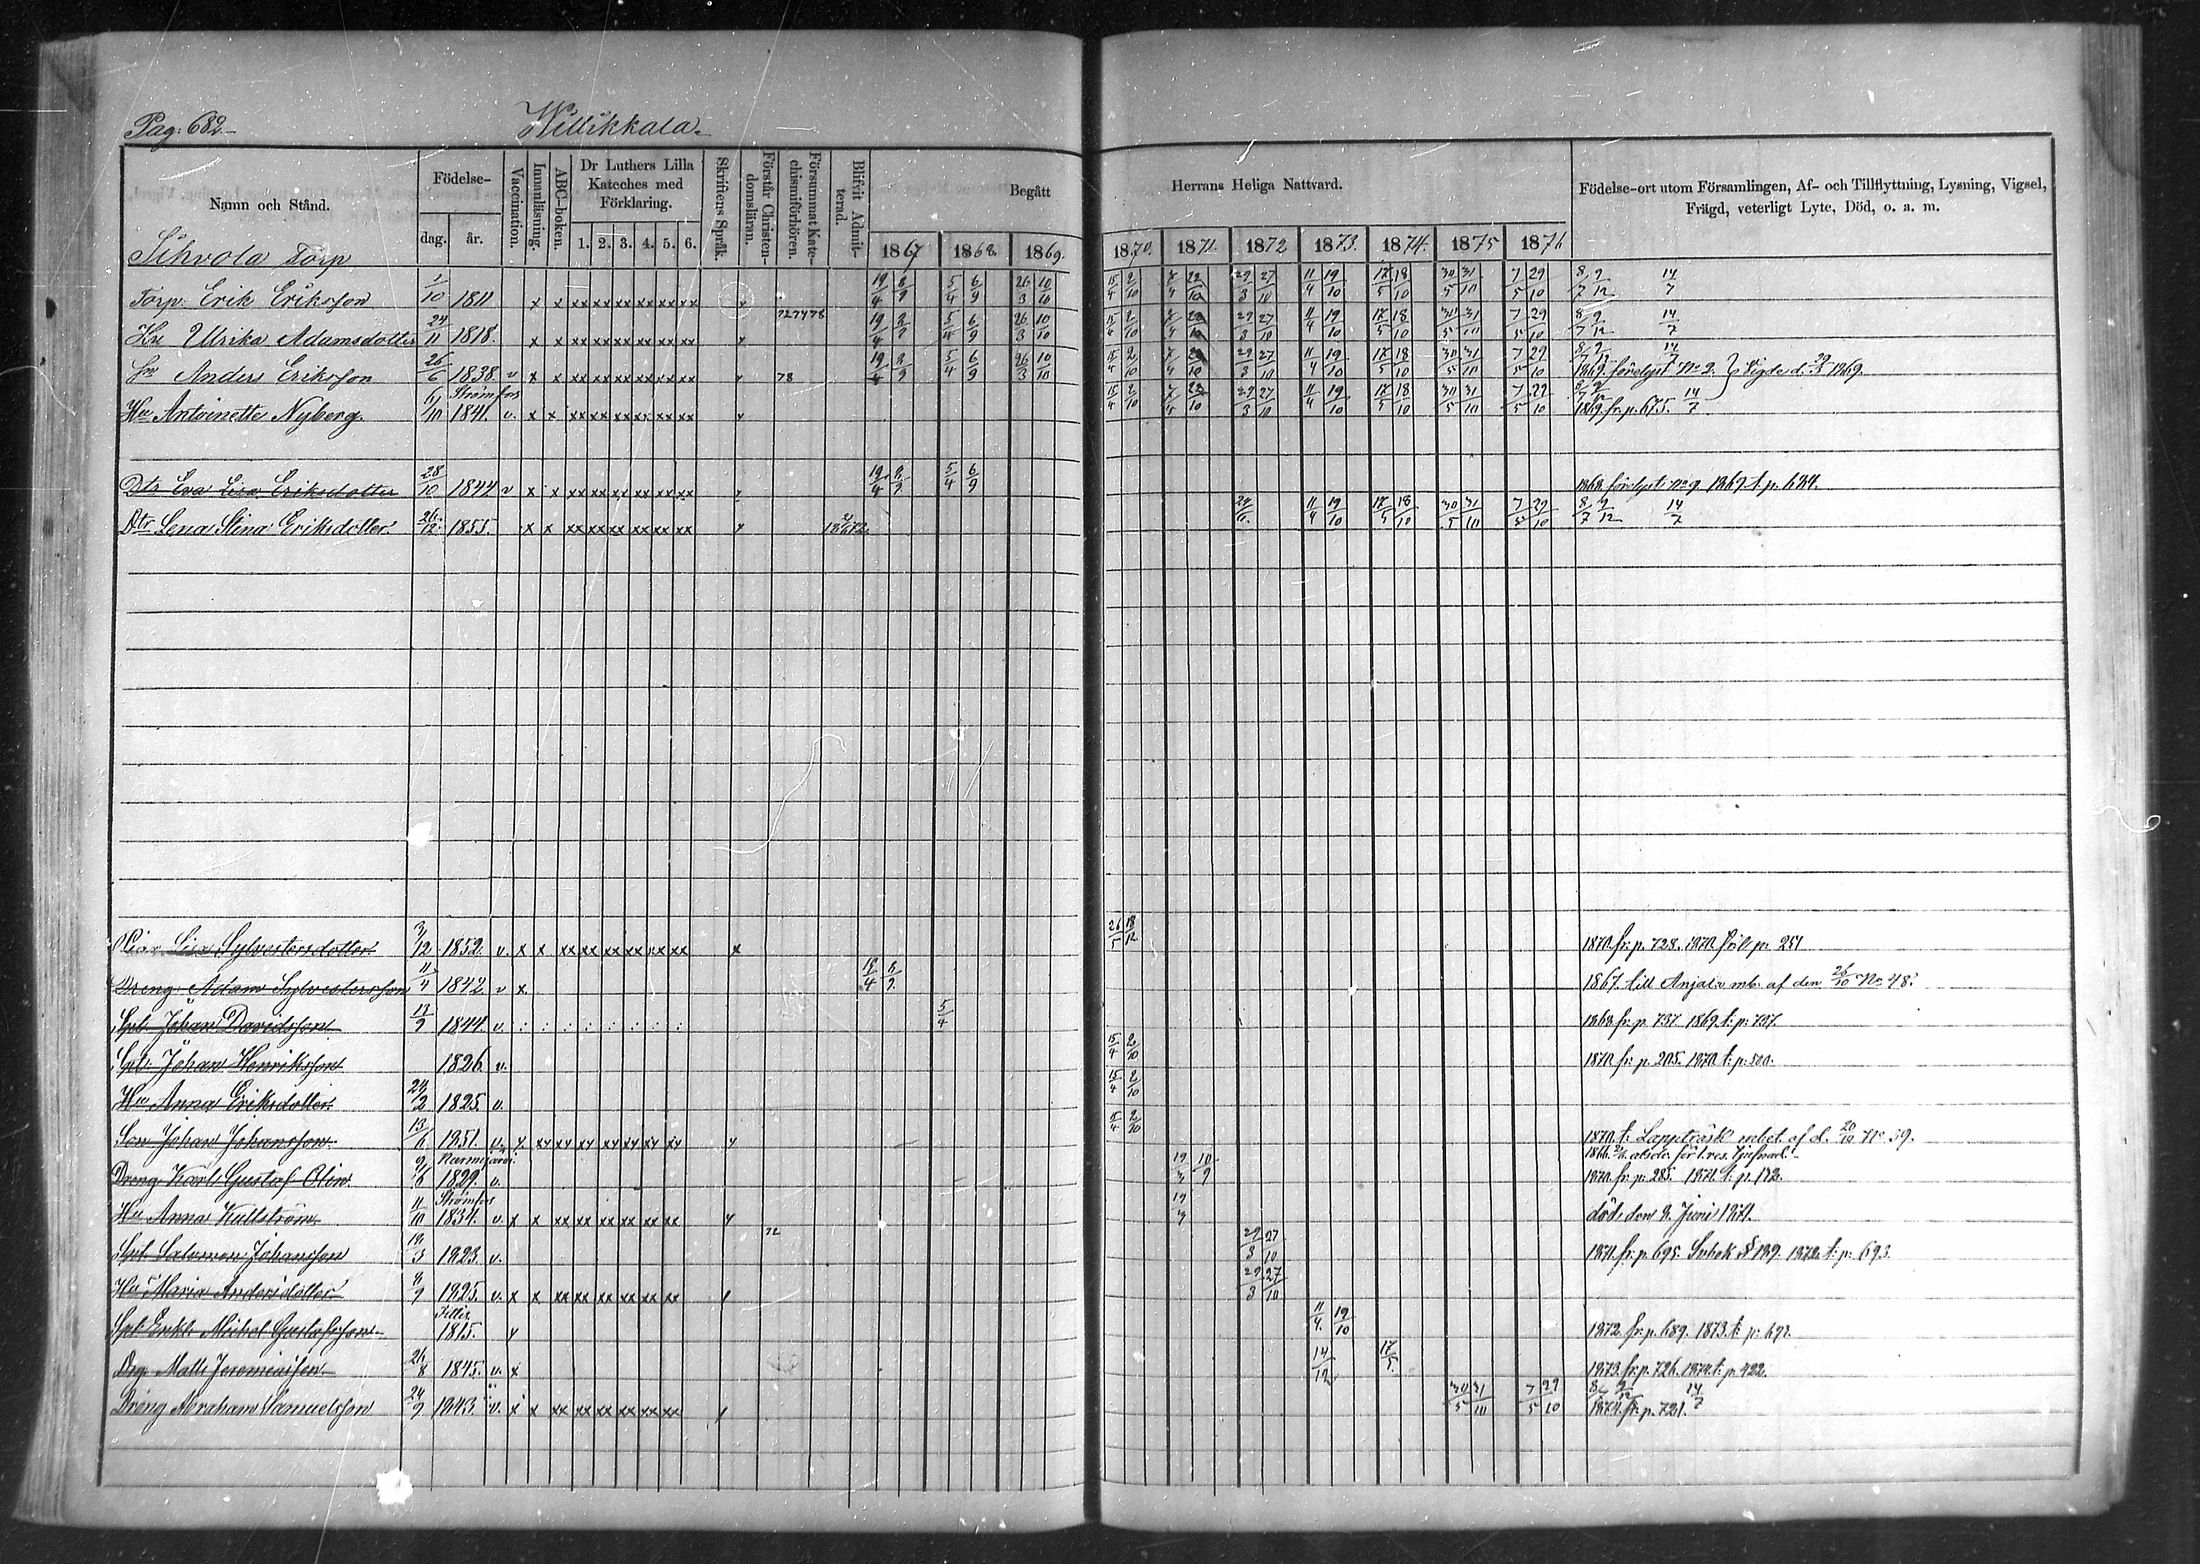 Pag: 682.
Willikkala.
Namn och Stånd.
Födelse-
dag. år.
Vaccination.
Innanläsning.
ABC-boken.
Dr Luthers Lilla Kateches med Förklaring.
1. 2. 3. 4. 5. 6.
Skriftens Språk.
Förstår Christendomsläran.
Försummat Katechismiförhören.
Blifvit Admitterad.
Begått Herrans Heliga Nattvard.
1867 1868. 1869. 1870. 1871. 1872 1873. 1874. 1875 1876
Födelse-ort utom Församlingen, Af- och Tillflyttning, Lysning, Vigsel, Frägd, veterligt Lyte, Död, o. a. m.
Sihvola Torp
Torp. Erik Eriksson 1/10 1811 x x xx xx xx xx xx xx 19/4 8/9 5/4 6/9 26/3 10/10 15/4 2/10 29/3 27/10 11/4 19/10 17/5 18/10 30/5 31/10 7/5 29/10 8/7 9/12 14/7
72 74 78
Hu Ulrika Adamsdotter 24/11 1818. x x xx xx xx xx xx xx 19/4 5/4 6/9 26/3 10/10 15/4 2/10 29/3 27/10 11/4 19/10 17/5 18/10 30/5 31/10 7/5 29/10 8/7 9/12 14/7
Sn Anders Eriksson 26/6 1838. v x x xx xx xx xx xx xx 78 19/4 5/4 6/9 26/3 10/10 15/4 2/10 29/3 27/10 11/4 19/10 17/5 18/10 30/5 31/10 7/5 29/10 1869. förelyst No 2. Vigde d. 1869.
Hu Antoinette Nyberg. Strömfors 1841. v. x x xx xx xx xx xx xx 15/4 2/10 29/3 27/10 11/4 19/10 17/5 18/10 30/5 31/10 7/5 29/10 1869. fr. p. 675. 14/7
Dtr Eva Lisa Eriksdotter 28/10 1844 v x x xx xx xx xx xx xx 19/4 5/4 6/9 1868. förelyst No 9. 1869 t. p. 684.
Dtr Lena Stina Eriksdotter. 26/12 1855. x x xx xx xx xx xx xx 11/4 19/10 17/5 18/10 30/5 31/10 7/5 29/10 8/7 9/12 14/7
Lisa Sylvestersdotter 3/12 1852. v. x x xx xx xx xx xx xx x 26/5 18/12 1870. fr. p. 728. 1870 p. 251
Dreng Adam Sylvestersson 11/4 1842 v x 1867. till Anjala mb. af den 26/10 No 48.
Johan Davidsson 1844. v. 5/4 1868. fr. p. 737. 1869. t. p. 737.
Johan Henriksson 1826 v. 15/4 2/10 1870. fr. p. 205. 1870. t. p. 500.
Hu Anna Eriksdotter 24/2 1825. v. 15/4 2/10
Son Johan Johansson 13/6 1851. v. x xx xx xx xx xx xx 15/4 2/10 1870. t. Lappträsk mbet. af d. No 59.
Nurmijärvi
Dreng Karl Gustaf Olin. 1829. v. 19/3 10/9 1870. fr. p. 285. 1871. t. p. 172.
Strömfors
Hu Anna Kullström 11/10 1834. v. x x xx xx xx xx xx xx 19/3 död. den 2. Juni 1871.
72
Salomon Johansson 1823. v. 29/3 27/10 1871. fr. p. 695. 1872. t. p. 693.
Hu Maria Andersdotter 8/9 1825. v. x x xx xx xx xx xx xx 29/3 27/10
Michel Gustafsson 1815. 11/4 19/10 1872. fr. p. 689. 1873. t. p. 692.
Drg. Matts Jeremiasson 26/8 1845. v. x 14/12 17/5 1873. fr. p. 726. 1874. t. p. 422.
Dreng Abraham Samuelsson 24/9 1843. v. x x xx xx xx xx xx xx 30/5 31/10 7/5 29/10 1874. fr. p. 721. 14/7